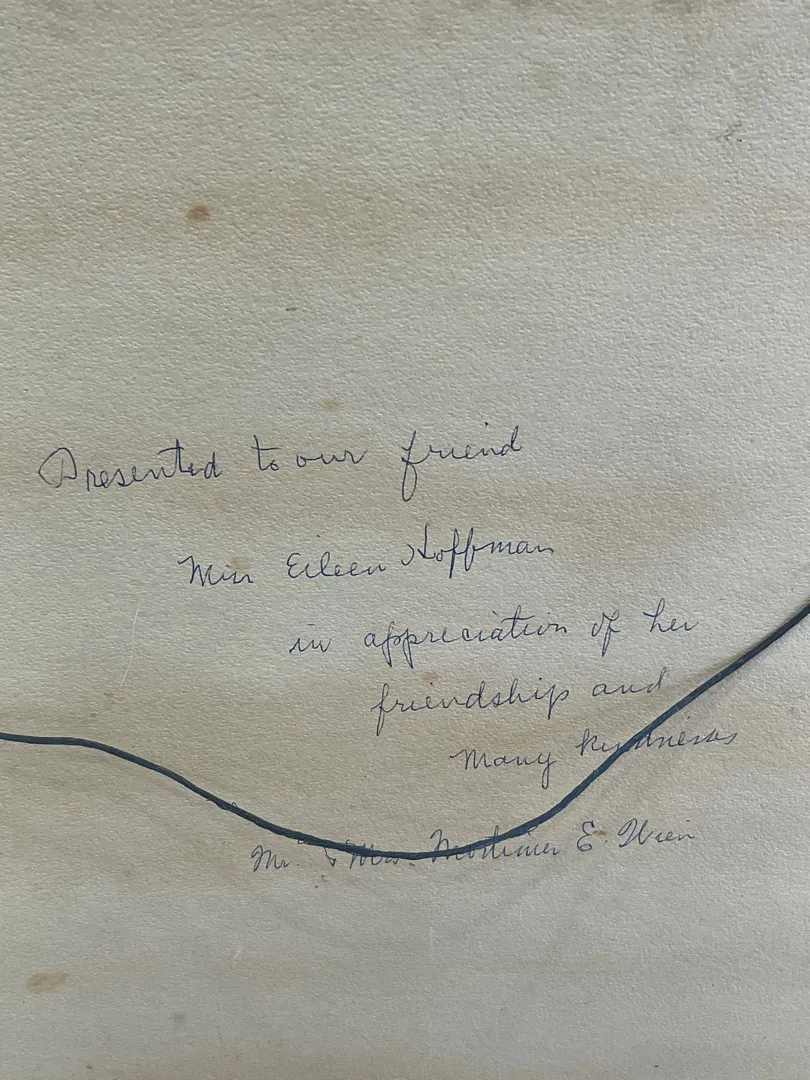 Presented to our friend
Miss Eileen Hoffman
in appreciation of her
friendship and
Many kindness
Mr. & Mrs. Mortimer E.